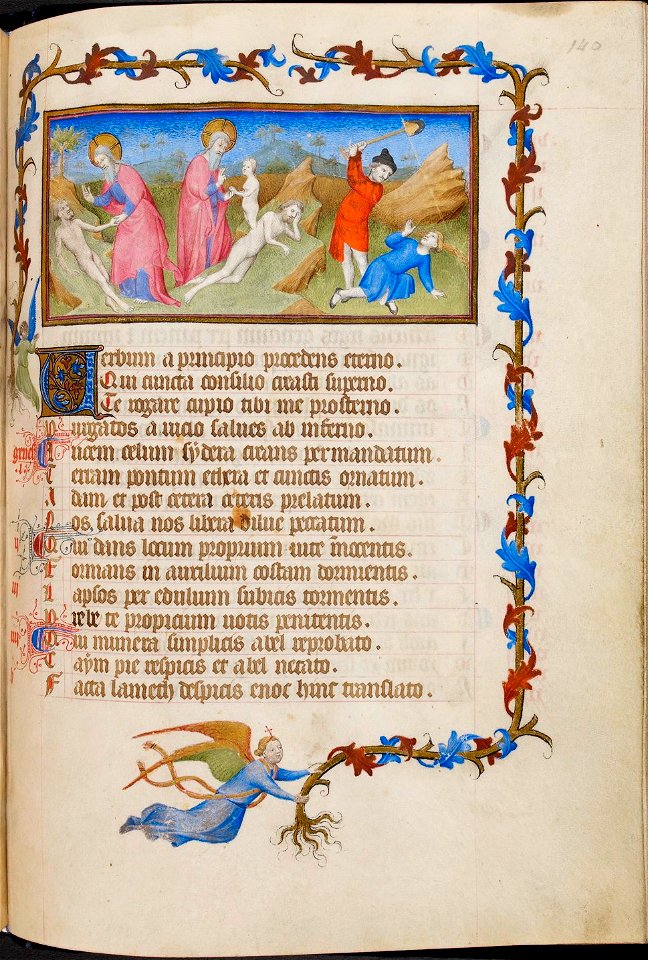 140
Verbum a principio procedens eterno.
Qui cuncta consilio creasti superno.
Te rogare cupio tibi me prosterno.
Purgatos a uicio salues ab inferno.
Lucem celum sydera creans per mandatum.
Terram pontum ethera et cunctis ornatum.
Adam et post cetera ceteris prelatum.
Nos salua nos libera dilue peccatum.
Qui dans locum proprium uite innocentis.
Formans in auxilium costam dormientis.
Lapsos per edulium subicis tormentis.
Prebe te propicium uotis penitentis.
Qui munera simplicis abel reprobato.
Caym pie respicis et abel necato.
Facta lamech despicis enoc hinc translato.